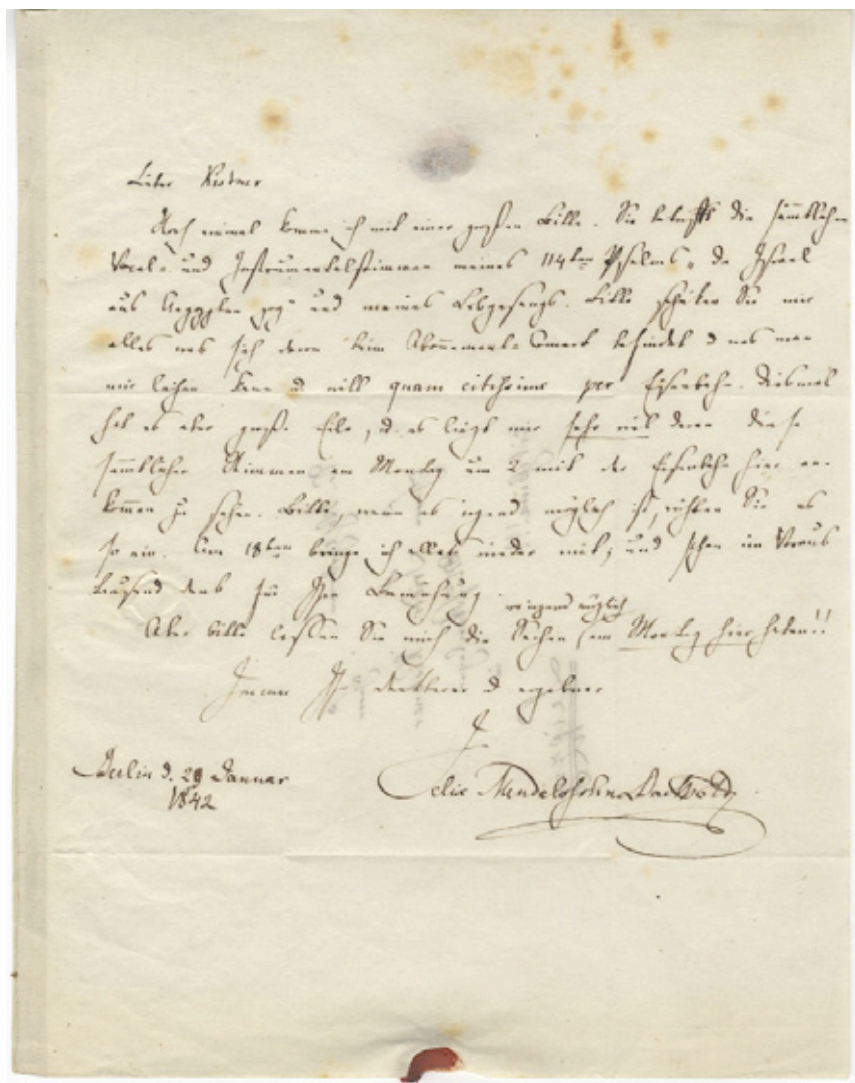 Lieber Kistner
Noch einmal komme ich mit einer großen Bitte. Sie betrifft die sämmtlichen
Vocal- und Instrumentalstimmen meines 114ten Psalms „da Israel
aus Aegypten zog“ und meines Lobgesangs. Bitte schicken Sie mir
alles was sich davon beim Abonnement-Concert befindet u was man
mir leihen kann und will quam citissime per Eisenbahn. Diesmal
hat es aber große Eile, u. es liegt mir sehr viel daran diese
sämmtlichen Stimmen am Montag um 2 mit der Eisenbahn hier an-
kommen zu sehen. Bitte, wenn es irgend möglich ist, richten Sie es
so ein. Am 18ten bringe ich alles wieder mit, und schon im Voraus
tausend Dank für Ihre Bemühung.
wo irgend möglich
Aber bitte lassen Sie mich die Sachen am Montag hier haben!!
Immer Ihr dankbarer u ergebner
Felix Mendelssohn Bartholdy
Berlin d. Januar
1842